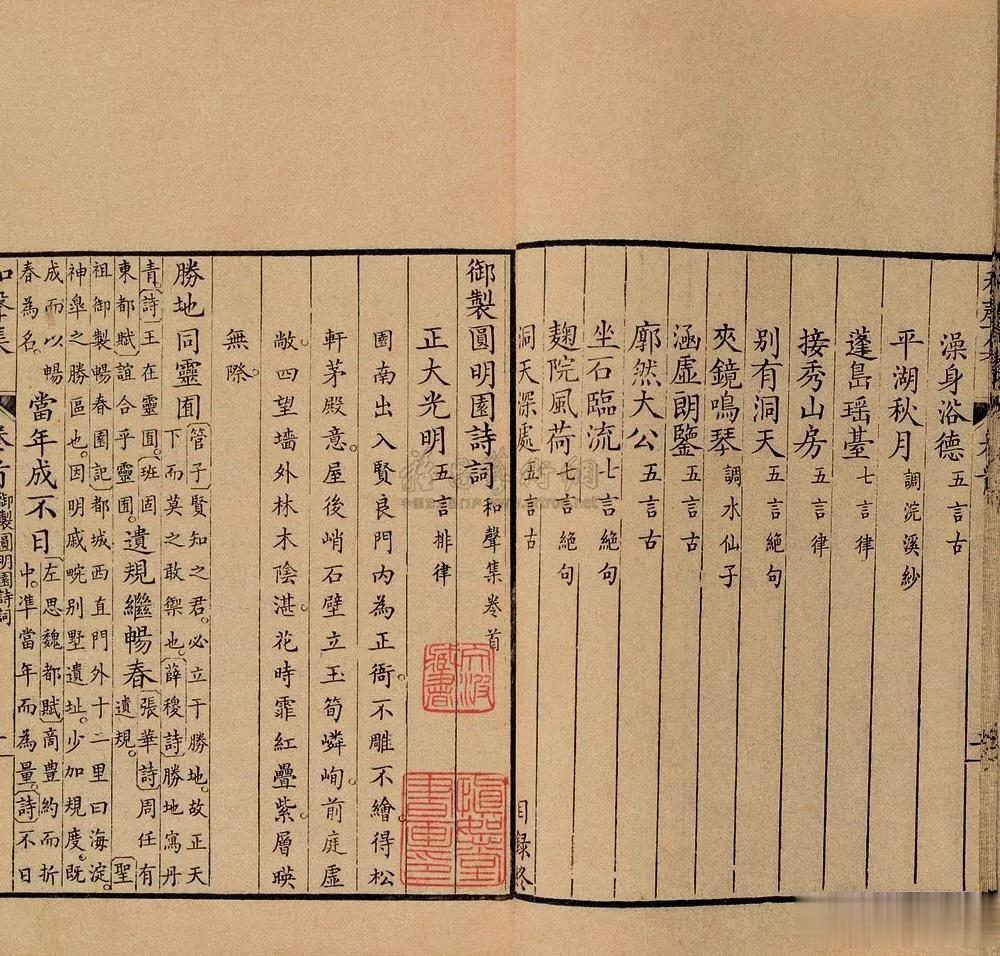 澡身浴德 五言古
平湖秋月 調浣溪紗
蓬島瑤臺 七言律
接秀山房 五言律
别有洞天 五言絶句
夾鏡鳴琴 調水仙子
涵虛朗鑒 五言古
廓然大公 五言古
坐石臨流 七言絶句
麹院風荷 七言絶句
洞天深處 五言古 目録終
御製圓明園詩詞 和聲集卷首
正大光明 五言排律
園南出入賢良門内為正衙。不雕不繪。得松
軒茅殿意。屋後峭石壁立玉筍嶙峋。前庭虛
敞。四望墻外林木陰湛。花時霏紅疊紫。層映
無際。
勝地同靈囿 管子賢知之君。必立于勝地。故正天
下而莫之敢禦也。薛稷詩勝地寓丹
青。詩王在靈囿。班固
東都賦誼合乎靈囿。遺規繼暢春 張華詩周任有
遺規。聖
祖御製暢春園記都城西直門外十二里曰海淀。
神臯之勝區也。因明戚畹别墅遺址。少加規度。既
成而以暢
春為名。當年成不日 左思魏都賦商豊約而折
中。準當年而為量。詩不日
御製圓明園詩詞